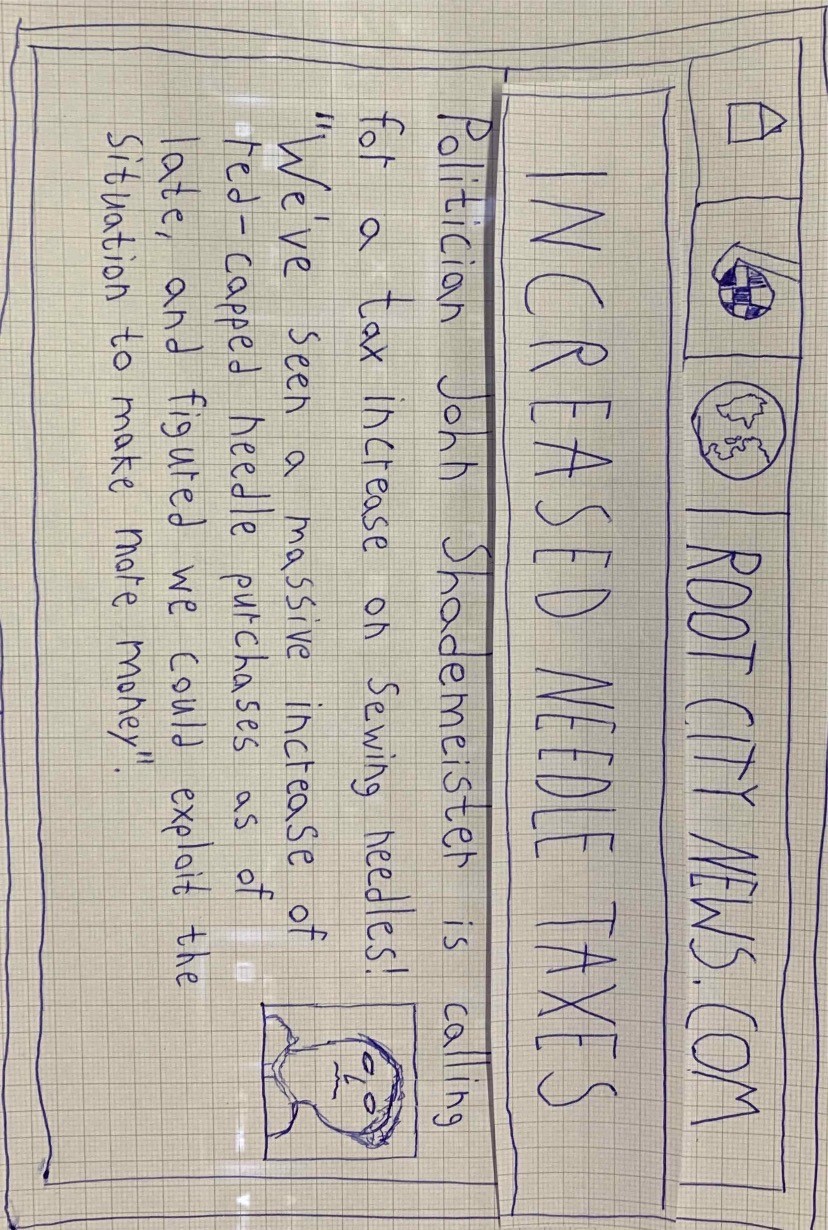 ROOT CITY NEWS.COM
INCREASED NEEDLE TAXES
Politician John Shademeister is calling
for a tax increase on sewing needles!
"We've seen a massive increase of
red-capped needle purchases as of
late, and figured we could exploit the
situation to make more money".